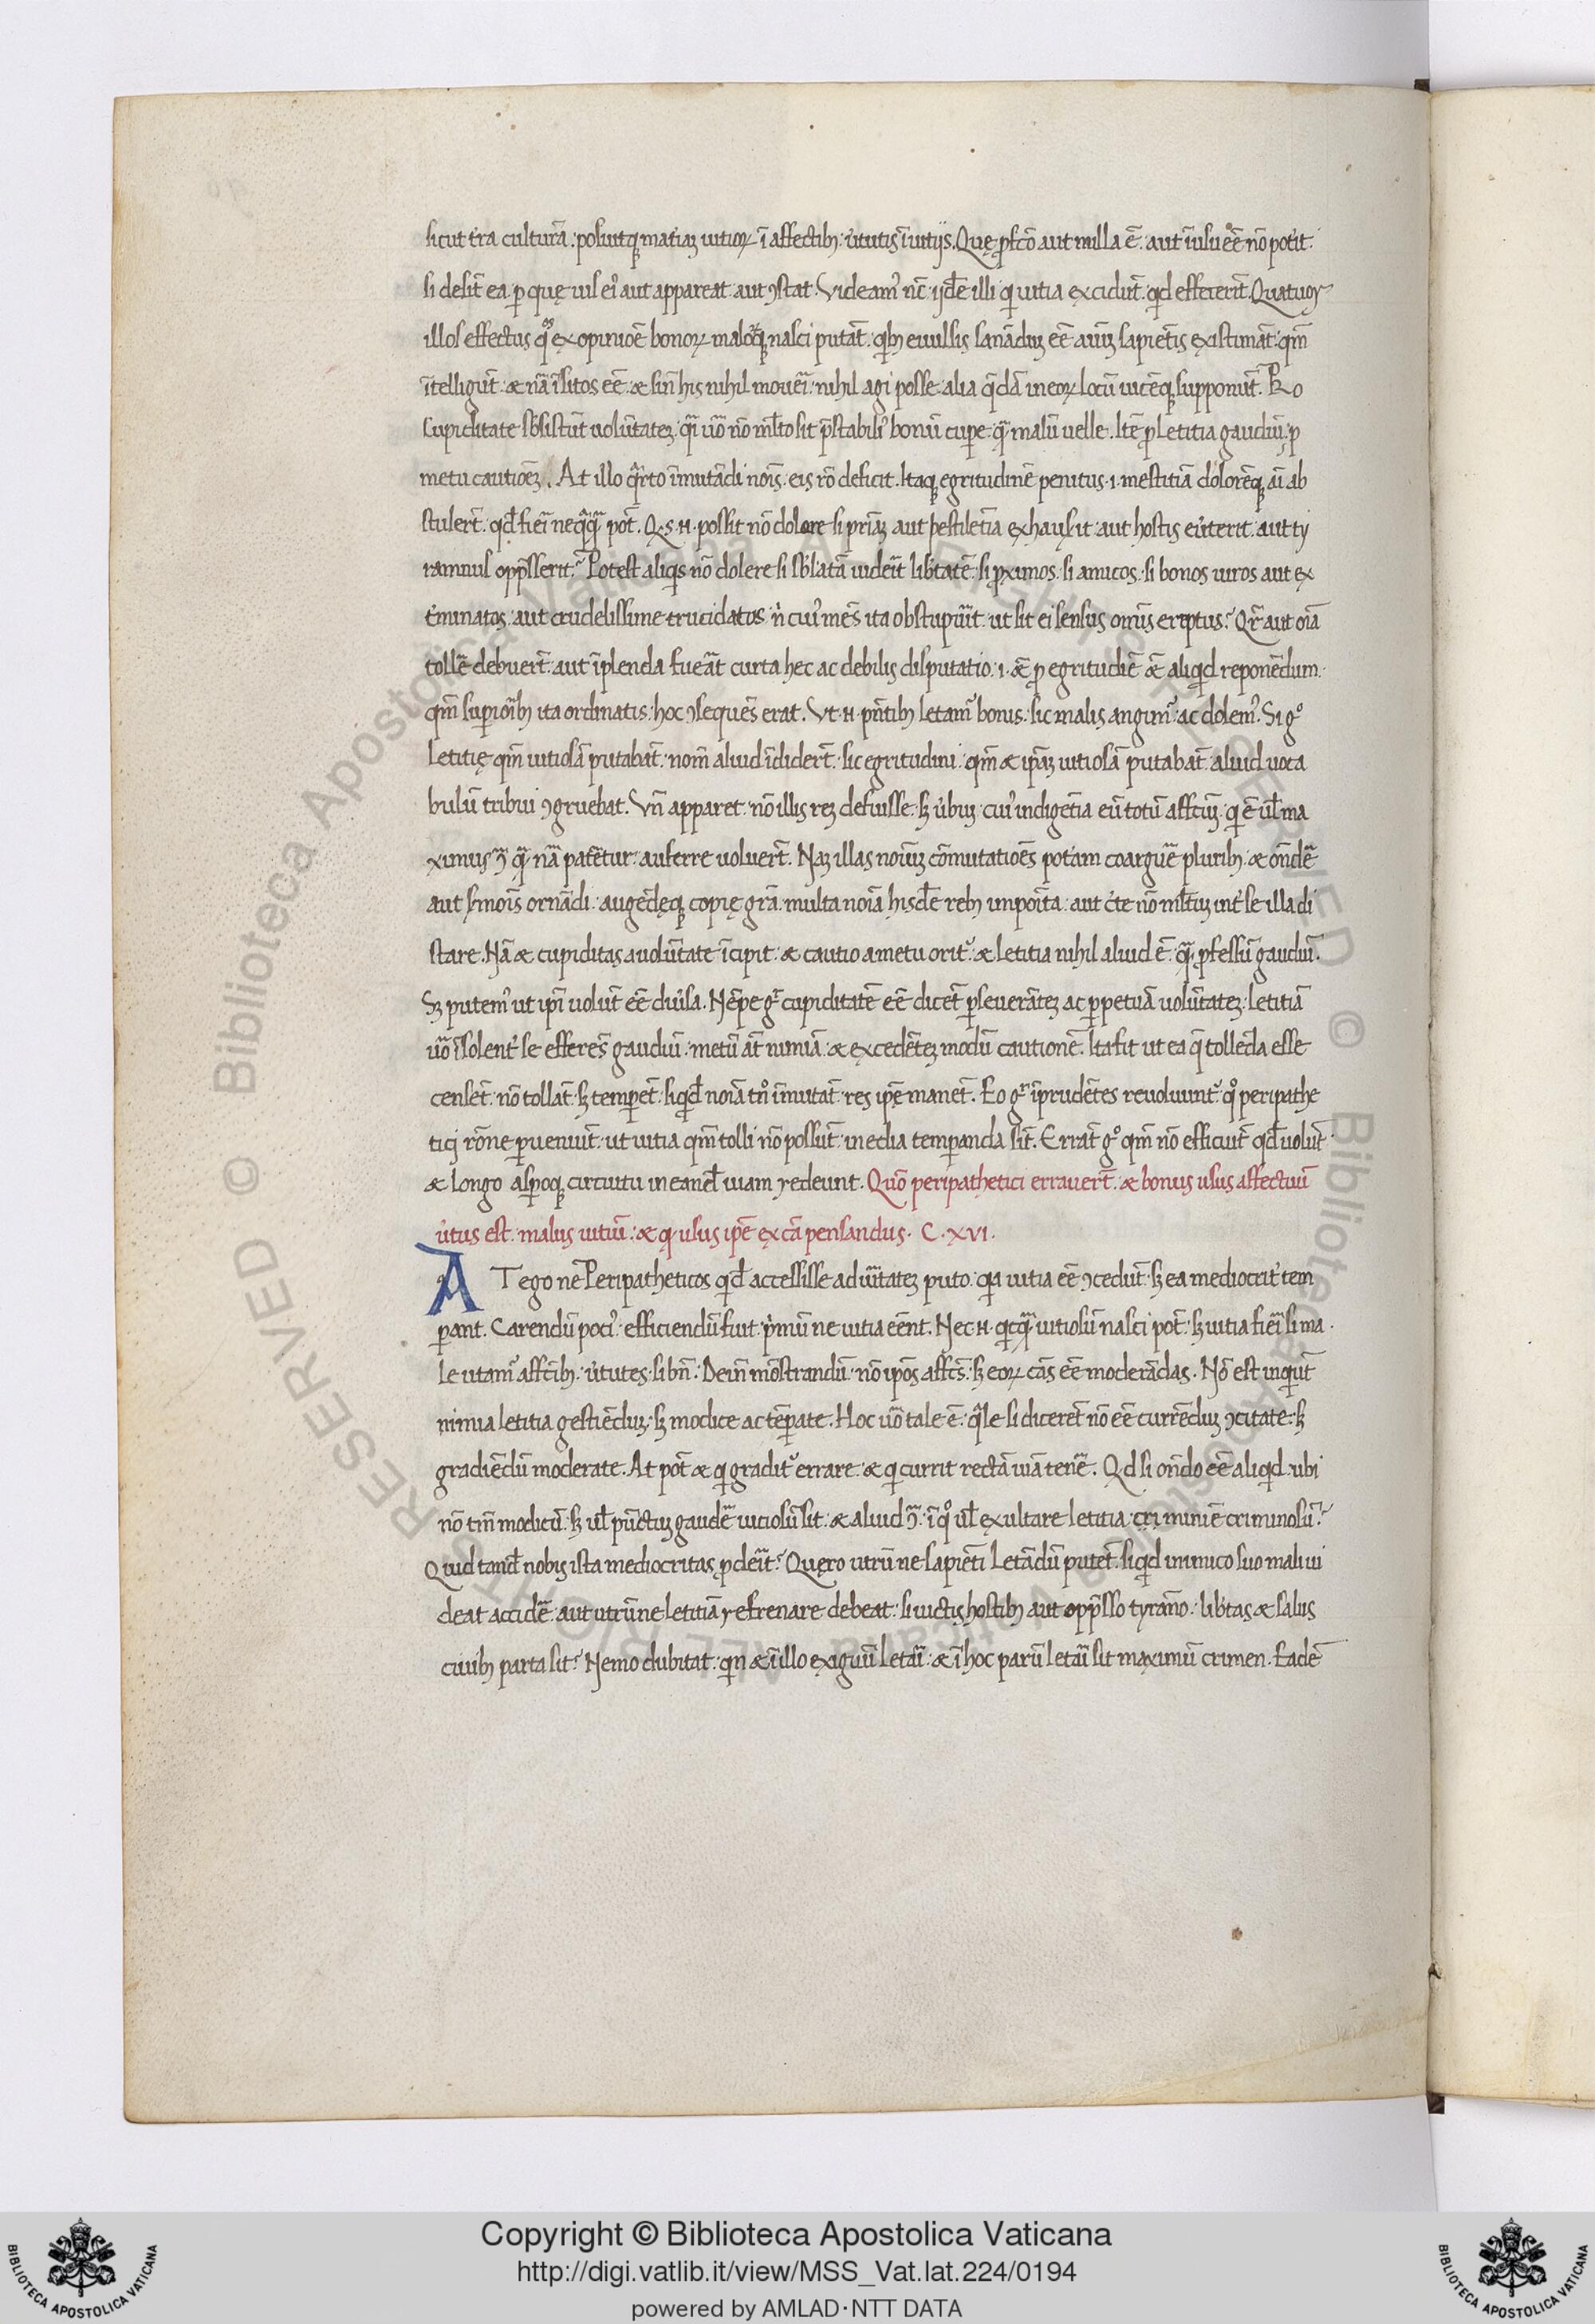 sicut t̄ra culturā: posuitq; mat̄iaz uitioꝝ ī affectib; u̓tutis ī uitijs. Quę ꝓfc̄o aut nulla ē: aut ī usu eē nō pot̓it:
si desit ea ꝑ quę usꝰ eiꝰ aut appareat aut ꝯstat. Videamꝰ nc̄ ijdē illi qi uitia excidūt: qd effecerīt. Quatuor
illos effectus qͦs ex opinioē bonoꝝ maloꝝq; nasci putāt: qib; euulsis sanāduz eē aīuz sapiētis existimāt: qm̄
ītelligūt: & nā īsitos eē: & sin̄ his nihil moueri: nihil agi posse: alia qdā in eoꝝ locū uicēq; supponūt. Pro
Cupiditate sbsistūt uolūtatez: qi uō nō ml̄to sit p̄stabiliꝰ bonū cupe: qᵃ malū uelle. Itē ꝓ letitia gaudiū: ꝓ
metu cautioēz. At illo qrto īmutādi nois̄: eis rō deficit. Itaq; egritudinē penitus .i. mestitiā dolorēq; ai ab
stulert̄: qd̄ fieri neqqᵃ pot̄. Qs .n. possit nō dolore si priaz aut pestilētia exhausit: aut hostis eu̓terit: aut ty
rannus opp̄sserit? Potest aliqis nō dolere si sblatā uideit̄ lib̓tatē: si ꝓximos: si amicos: si bonos uiros aut ex
t̓minatos: aut crudelissime trucidatos: n̓ cuiꝰ mēs ita obstupuit̄: ut sit ei sensus om̄is ereptus? Qr̄ aut oīa
tolle debuert̄: aut īplenda fueāt curta hec ac debilis disputatio .i. & ꝓ egritudiē & aliqid reponēdum:
qm̄ suꝑiorib; ita ordinatis: hoc ꝯsequēs erat. Vt .n. pn̄tib; letamᷣ bonis: sic malis angimᷣ ac dolemꝰ. Si gͦ
letitię qm̄ uitiosā putabāt: nom̄ aliud īdiderūt: sic egritudini: qm̄ & ip̄az uitiosā putabāt: aliud uoca
bulū tribui ꝯgruebat. Vn̄ apparet: nō illis rez defuisse: sz u̓buz: cuiꝰ indigētia eū totū affcūz: qi ē ul̄ ma
ximus ꝯͣ qᵃ nā patētur: auferre uoluert̄. Naz illas noiuz cōmutatioēs pot̓am coarguē plurib; & on̄dē
aut smois̄ ornādi: augēdęq; copię grā: multa noīa hisdē reb; imposita: aut c̓te nō ml̄tuz int̓ se illa di
stare. Nā & cupiditas a uolūtate īcipit: & cautio a metu oritᷣ: & letitia nihil aliud ē: qᵃ ꝓfessū gaudiū.
Sz putemꝰ ut ipī uolūt eē diu̓sa. Nēpe gᷣ cupiditatē eē dicēt ꝑseuerātez ac ꝑpetuā uolūtatez: letitiā
uō īsolent̓ se efferēs gaudiū: metū āt nimiā & excedētez modū cautionē. Ita fit ut ea q̄ tollēda esse
censēt: nō tollāt: sz temperēt: siqd̄ noīa tn̄ īmutāt: res ip̄ę manēt. Eo gͦ īprudētes reuoluuntᷣ: qͦ peripathe
tici rōne ꝑueniūt: ut uitia qm̄ tolli nō possūt: media temperanda sīt. Errāt gͦ qm̄ nō efficiūt qd̄ uolūt:
& longo aspoq; circuitu in eand̄ uiam redeunt. Quō peripathetici errauert̄: & bonus usus affectuū
u̓tus est: malus uitiū: & q usus ip̄e ex cā pensandus. C. XVI.
AT ego ne Peripatheticos qd̄ accessisse ad uit̄atez puto: qa uitia eē ꝯcedūt: sz ea mediocrit̓ tem
perant. Carendū potiꝰ: efficiendū fuit: p̓mū ne uitia eēnt. Nec .n. qicqᵃ uitiosū nasci pot̄: sz uitia fieri si ma
le utamᷣ affcib;: u̓tutes: si bn̄. Dein̄ mōstrandū: nō ip̄os affcs: sz eoꝝ cās eē moderādas. Nō est inqiūt
nimia letitia gestiēduz: sz modice ac tēperate. Hoc uō tale ē: qle si dicerēt nō eē currēduz ꝯcitate: sz
gradiēdū moderate. At pot̄ & qi graditᷣ errare: & qi currit rectā uiā tenē. Qd si on̄do eē aliqid: ubi
nō tm̄ modicū: sz ul̄ pūctuz gaudē uitiosū sit: & aliud ꝯͣ: ī qͦ ul̄ exultare letitia: crimini ē criminosū?
Quid tand̄ nobis ista mediocritas ꝓdeit̄? Quęro utrū ne sapiēti letādū putēt: siqid inimico suo mali ui
deat accidē: aut utrūne letitiā refrenare debeat: si uictis hostib; aut opp̄sso tyrāno: lib̓tas & salus
ciuib; parta sit? Nemo dubitat: qin & ī illo exiguū letari: & ī hoc parū letari sit maximū crimen. Eadē
Copyright © Biblioteca Apostolica Vaticana
http://digi.vatlib.it/view/MSS_Vat.lat.224/0194
powered by AMLAD·NTT DATA
BIBLIOTECA APOSTOLICA VATICANA
BIBLIOTECA APOSTOLICA VATICANA